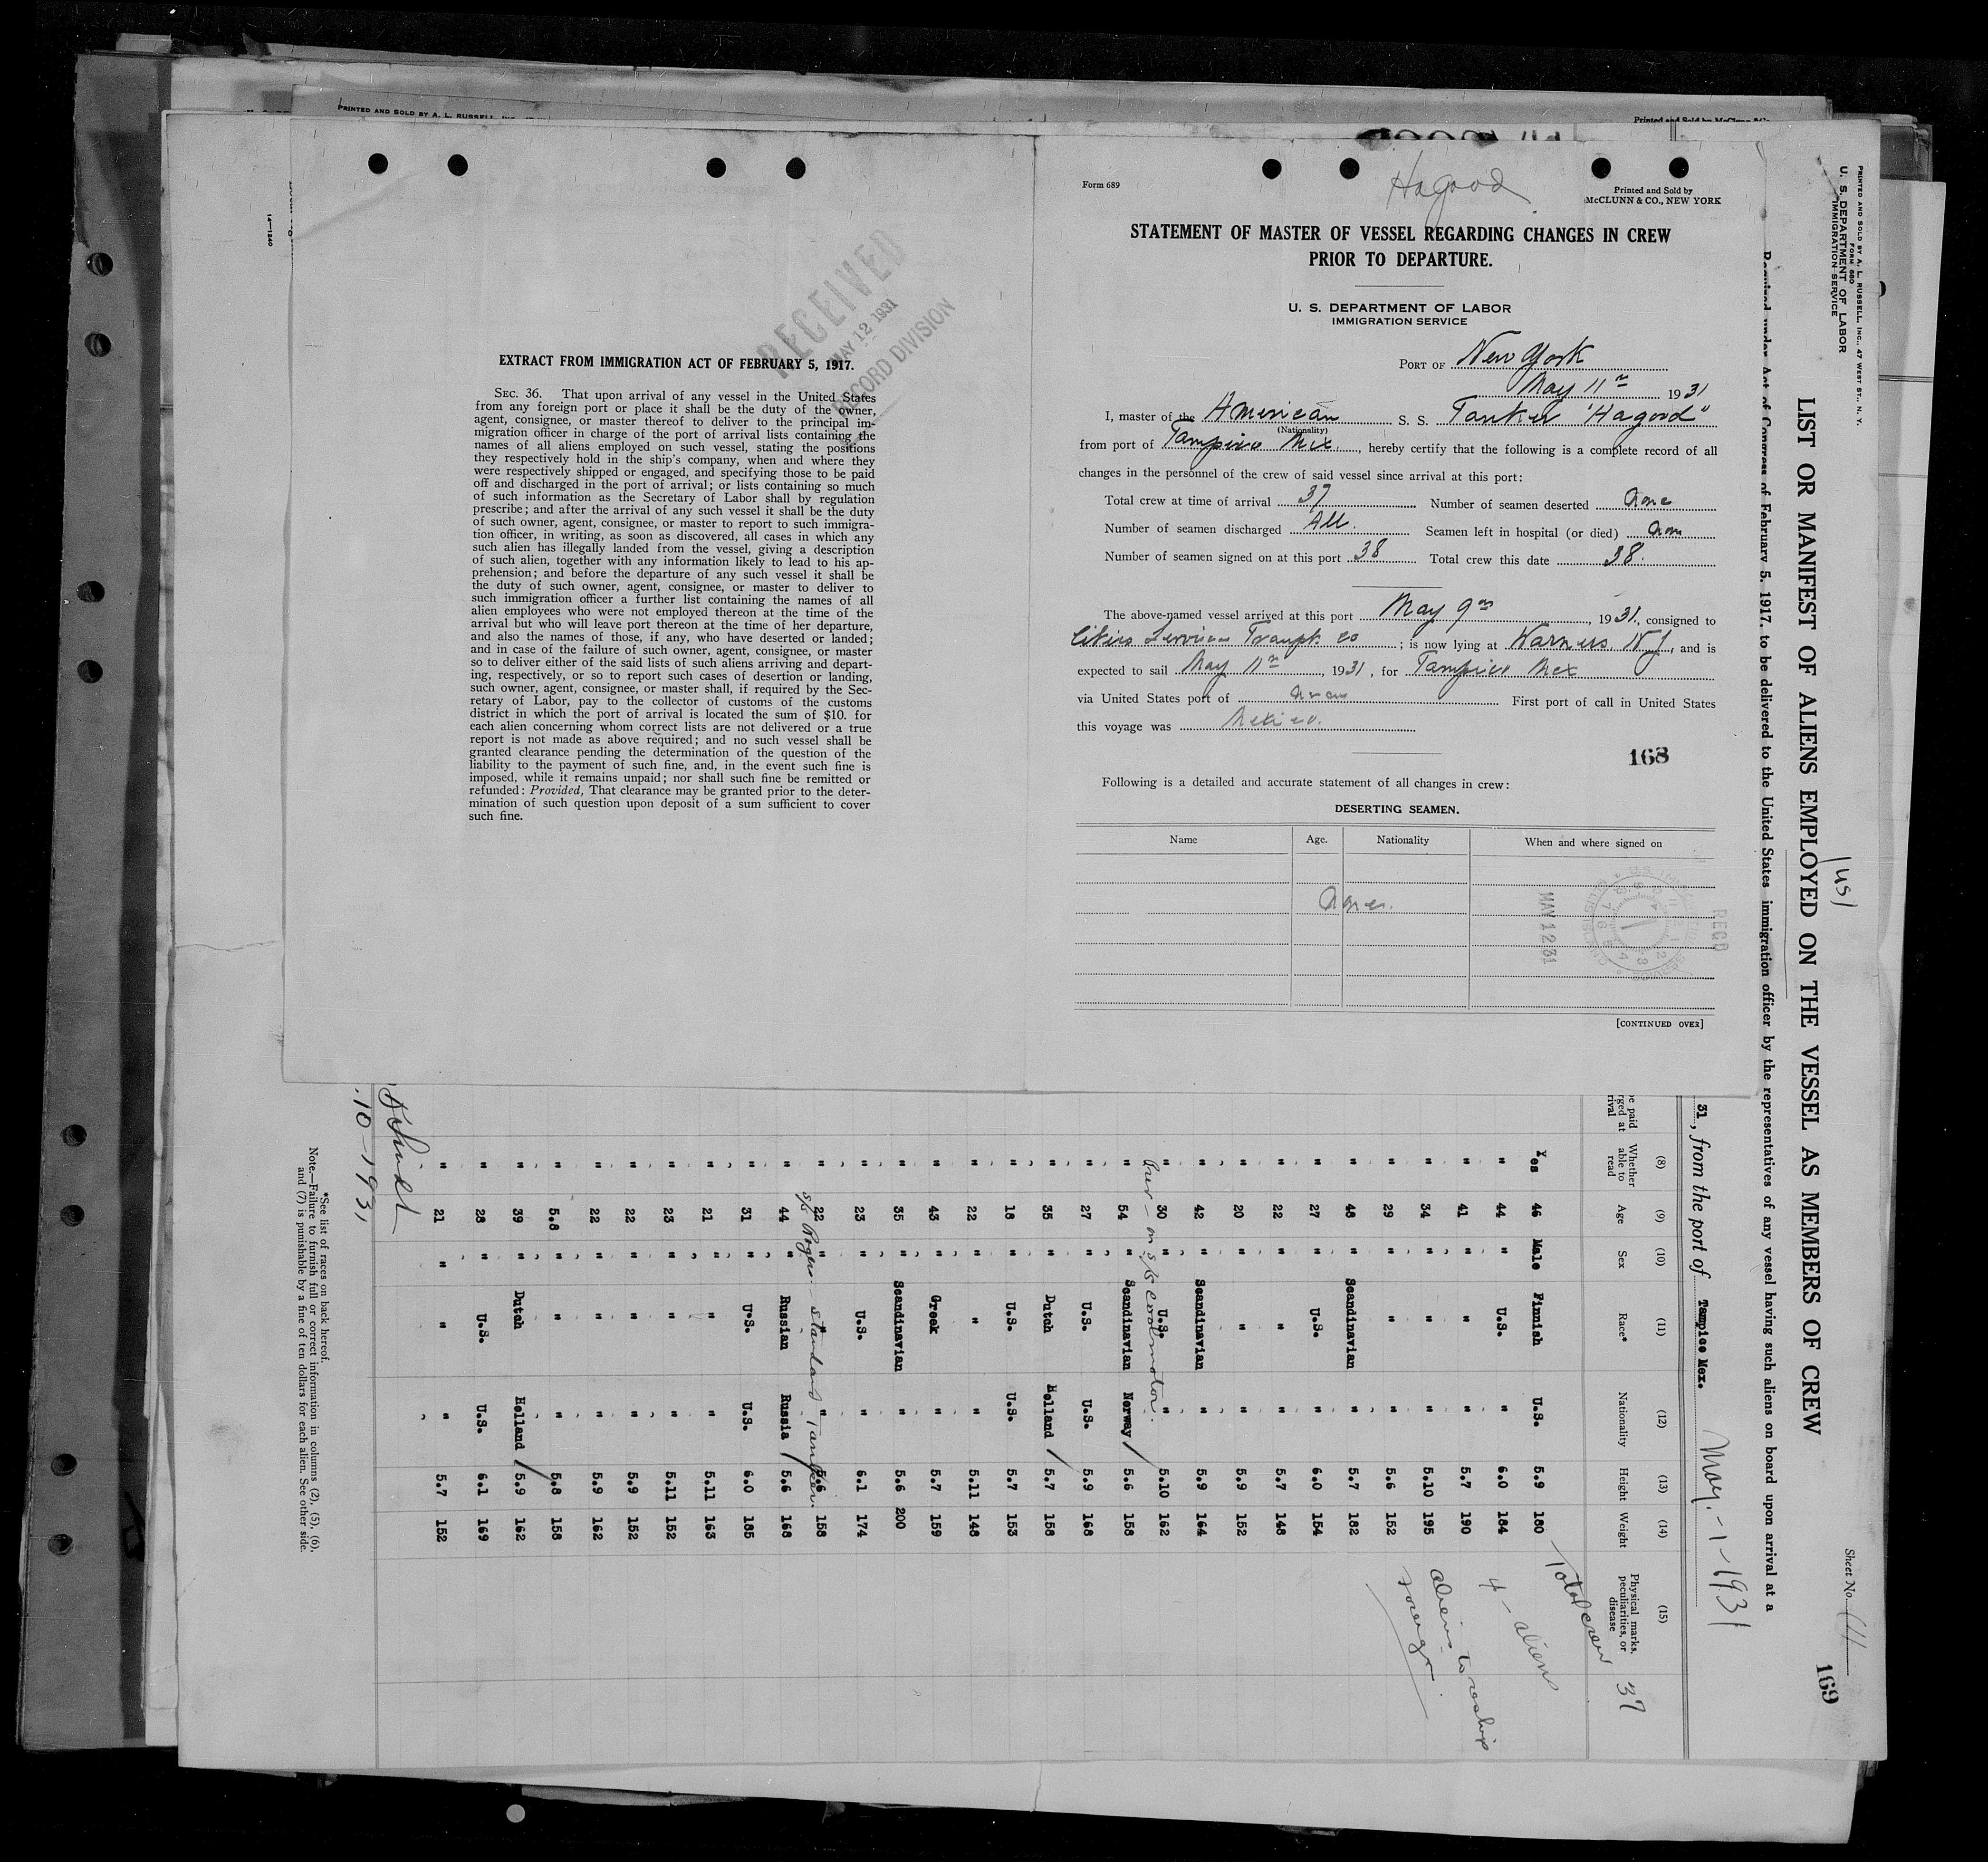 PRINTED AND SOLD BY A. L. RUSSELL, INC.
Printed and Sold by McClunn & Co.
14—1240
EXTRACT FROM IMMIGRATION ACT OF FEBRUARY 5, 1917.
SEC. 36. That upon arrival of any vessel in the United States
from any foreign port or place it shall be the duty of the owner,
agent, consignee, or master thereof to deliver to the principal im-
migration officer in charge of the port of arrival lists containing the
names of all aliens employed on such vessel, stating the positions
they respectively hold in the ship's company, when and where they
were respectively shipped or engaged, and specifying those to be paid
off and discharged in the port of arrival; or lists containing so much
of such information as the Secretary of Labor shall by regulation
prescribe; and after the arrival of any such vessel it shall be the duty
of such owner, agent, consignee, or master to report to such immigra-
tion officer, in writing, as soon as discovered, all cases in which any
such alien has illegally landed from the vessel, giving a description
of such alien, together with any information likely to lead to his ap-
prehension; and before the departure of any such vessel it shall be
the duty of such owner, agent, consignee, or master to deliver to
such immigration officer a further list containing the names of all
alien employees who were not employed thereon at the time of the
arrival but who will leave port thereon at the time of her departure,
and also the names of those, if any, who have deserted or landed;
and in case of the failure of such owner, agent, consignee, or master
so to deliver either of the said lists of such aliens arriving and depart-
ing, respectively, or so to report such cases of desertion or landing,
such owner, agent, consignee, or master shall, if required by the Sec-
retary of Labor, pay to the collector of customs of the customs
district in which the port of arrival is located the sum of $10. for
each alien concerning whom correct lists are not delivered or a true
report is not made as above required; and no such vessel shall be
granted clearance pending the determination of the question of the
liability to the payment of such fine, and, in the event such fine is
imposed, while it remains unpaid; nor shall such fine be remitted or
refunded: Provided, That clearance may be granted prior to the deter-
mination of such question upon deposit of a sum sufficient to cover
such fine.
RECEIVED
MAY 12 1931
RECORD DIVISION
Hagood
Form 689
Printed and Sold by
McCLUNN & CO., NEW YORK
STATEMENT OF MASTER OF VESSEL REGARDING CHANGES IN CREW
PRIOR TO DEPARTURE.
U. S. DEPARTMENT OF LABOR
IMMIGRATION SERVICE
PORT OF New York
May 11th 1931
I, master of the American S. S. Tanker "Hagood"
(Nationality)
from port of Tampico Mex., hereby certify that the following is a complete record of all
changes in the personnel of the crew of said vessel since arrival at this port:
Total crew at time of arrival 37 Number of seamen deserted None
Number of seamen discharged All. Seamen left in hospital (or died) None
Number of seamen signed on at this port 38 Total crew this date 38.
The above-named vessel arrived at this port May 9th, 1931, consigned to
Cities Service Transpt. Co; is now lying at Warners, N J, and is
expected to sail May 11th, 1931, for Tampico Mex
via United States port of None First port of call in United States
this voyage was Mexico.
168
Following is a detailed and accurate statement of all changes in crew:
DESERTING SEAMEN.
Name Age. Nationality When and where signed on
None.
MAY 12 31
RECD
[CONTINUED OVER]
PRINTED AND SOLD BY A. L. RUSSELL, INC., 47 WEST ST., N. Y.
FORM 680
U. S. DEPARTMENT OF LABOR
IMMIGRATION SERVICE
Sheet No.
169
LIST OR MANIFEST OF ALIENS EMPLOYED ON THE VESSEL AS MEMBERS OF CREW
Required under Act of Congress of February 5, 1917, to be delivered to the United States immigration officer by the representatives of any vessel having such aliens on board upon arrival at a
31, from the port of Tampico Mex. May-1-1931
(8) (9) (10) (11) (12) (13) (14) (15)
Whether able to read Age Sex Race* Nationality Height Weight Physical marks, peculiarities, or disease
Total crew 37
4 - aliens
aliens to reship
foreign
Yes 46 Male Finnish U.S. 5.9 180
" 44 " U.S. " 6.0 184
" 41 " " " 5.7 190
" 34 " " " 5.10 195
" 29 " " " 5.6 152
" 48 " Scandinavian " 5.7 182
" 27 " U.S. " 6.0 154
" 22 " " " 5.7 148
" 20 " " " 5.9 152
" 42 " Scandinavian " 5.9 164
" 30 " U.S. " 5.10 162
" 54 " Scandinavian Norway 5.6 158
" 27 " U.S. U.S. 5.9 168
" 35 " Dutch Holland 5.7 158
" 18 " U.S. U.S. 5.7 153
" 22 " " " 5.11 148
" 43 " Greek " 5.7 159
" 35 " Scandinavian " 5.6 200
" 23 " U.S. " 6.1 174
" 22 " " " 5.6 158
S/S Rogers - Standard Tanker.
" 44 " Russian Russia 5.6 168
" 31 " U.S. U.S. 6.0 185
" 21 " " " 5.11 163
" 23 " " " 5.11 152
" 22 " " " 5.9 152
" 22 " " " 5.9 162
" 5.8 " " " 5.8 158
" 39 " Dutch Holland 5.9 162
" 28 " U.S. U.S. 6.1 169
" 21 " " " 5.7 152
10-1931
*See list of races on back hereof.
Note.—Failure to furnish full or correct information in columns (2), (5), (6),
and (7) is punishable by a fine of ten dollars for each alien. See other side.